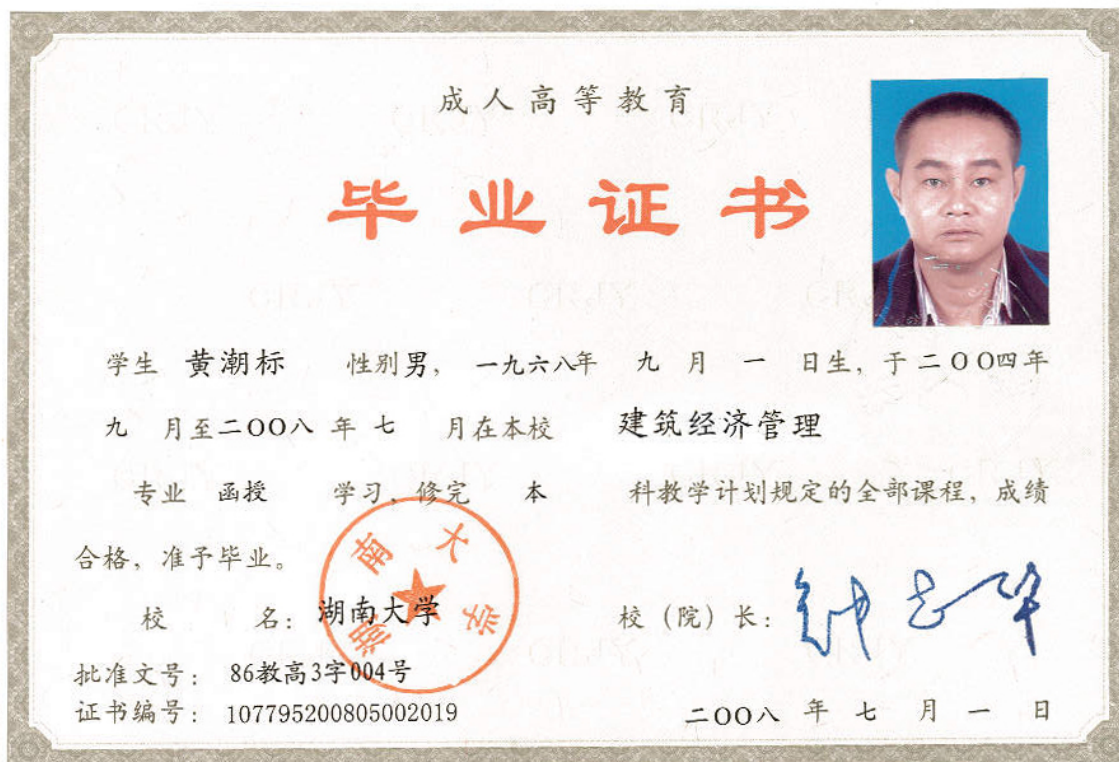 成人高等教育
毕业证书
学生 黄潮标 性别男，一九六八年 九 月 一 日生，于二OO四年
九 月至二OO八 年 七 月在本校 建筑经济管理
专业 函授 学习，修完 本 科教学计划规定的全部课程，成绩
合格，准予毕业。
校 名：湖南大学 校（院）长：钟志华
湖南大学
批准文号：86教高3字004号
证书编号：107795200805002019
二OO八 年 七 月 一 日